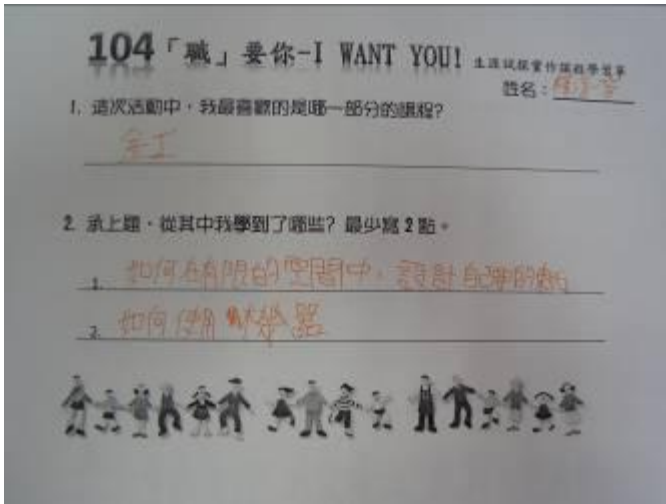 104「職」要你-I WANT YOU! 生涯試探實作課程學習單
姓名：
1. 這次活動中，我最喜歡的是哪一部分的課程?
金工
2. 承上題，從其中我學到了哪些? 最少寫2點。
1. 如何在有限的空間中，設計自己的
2. 如何使用 機器